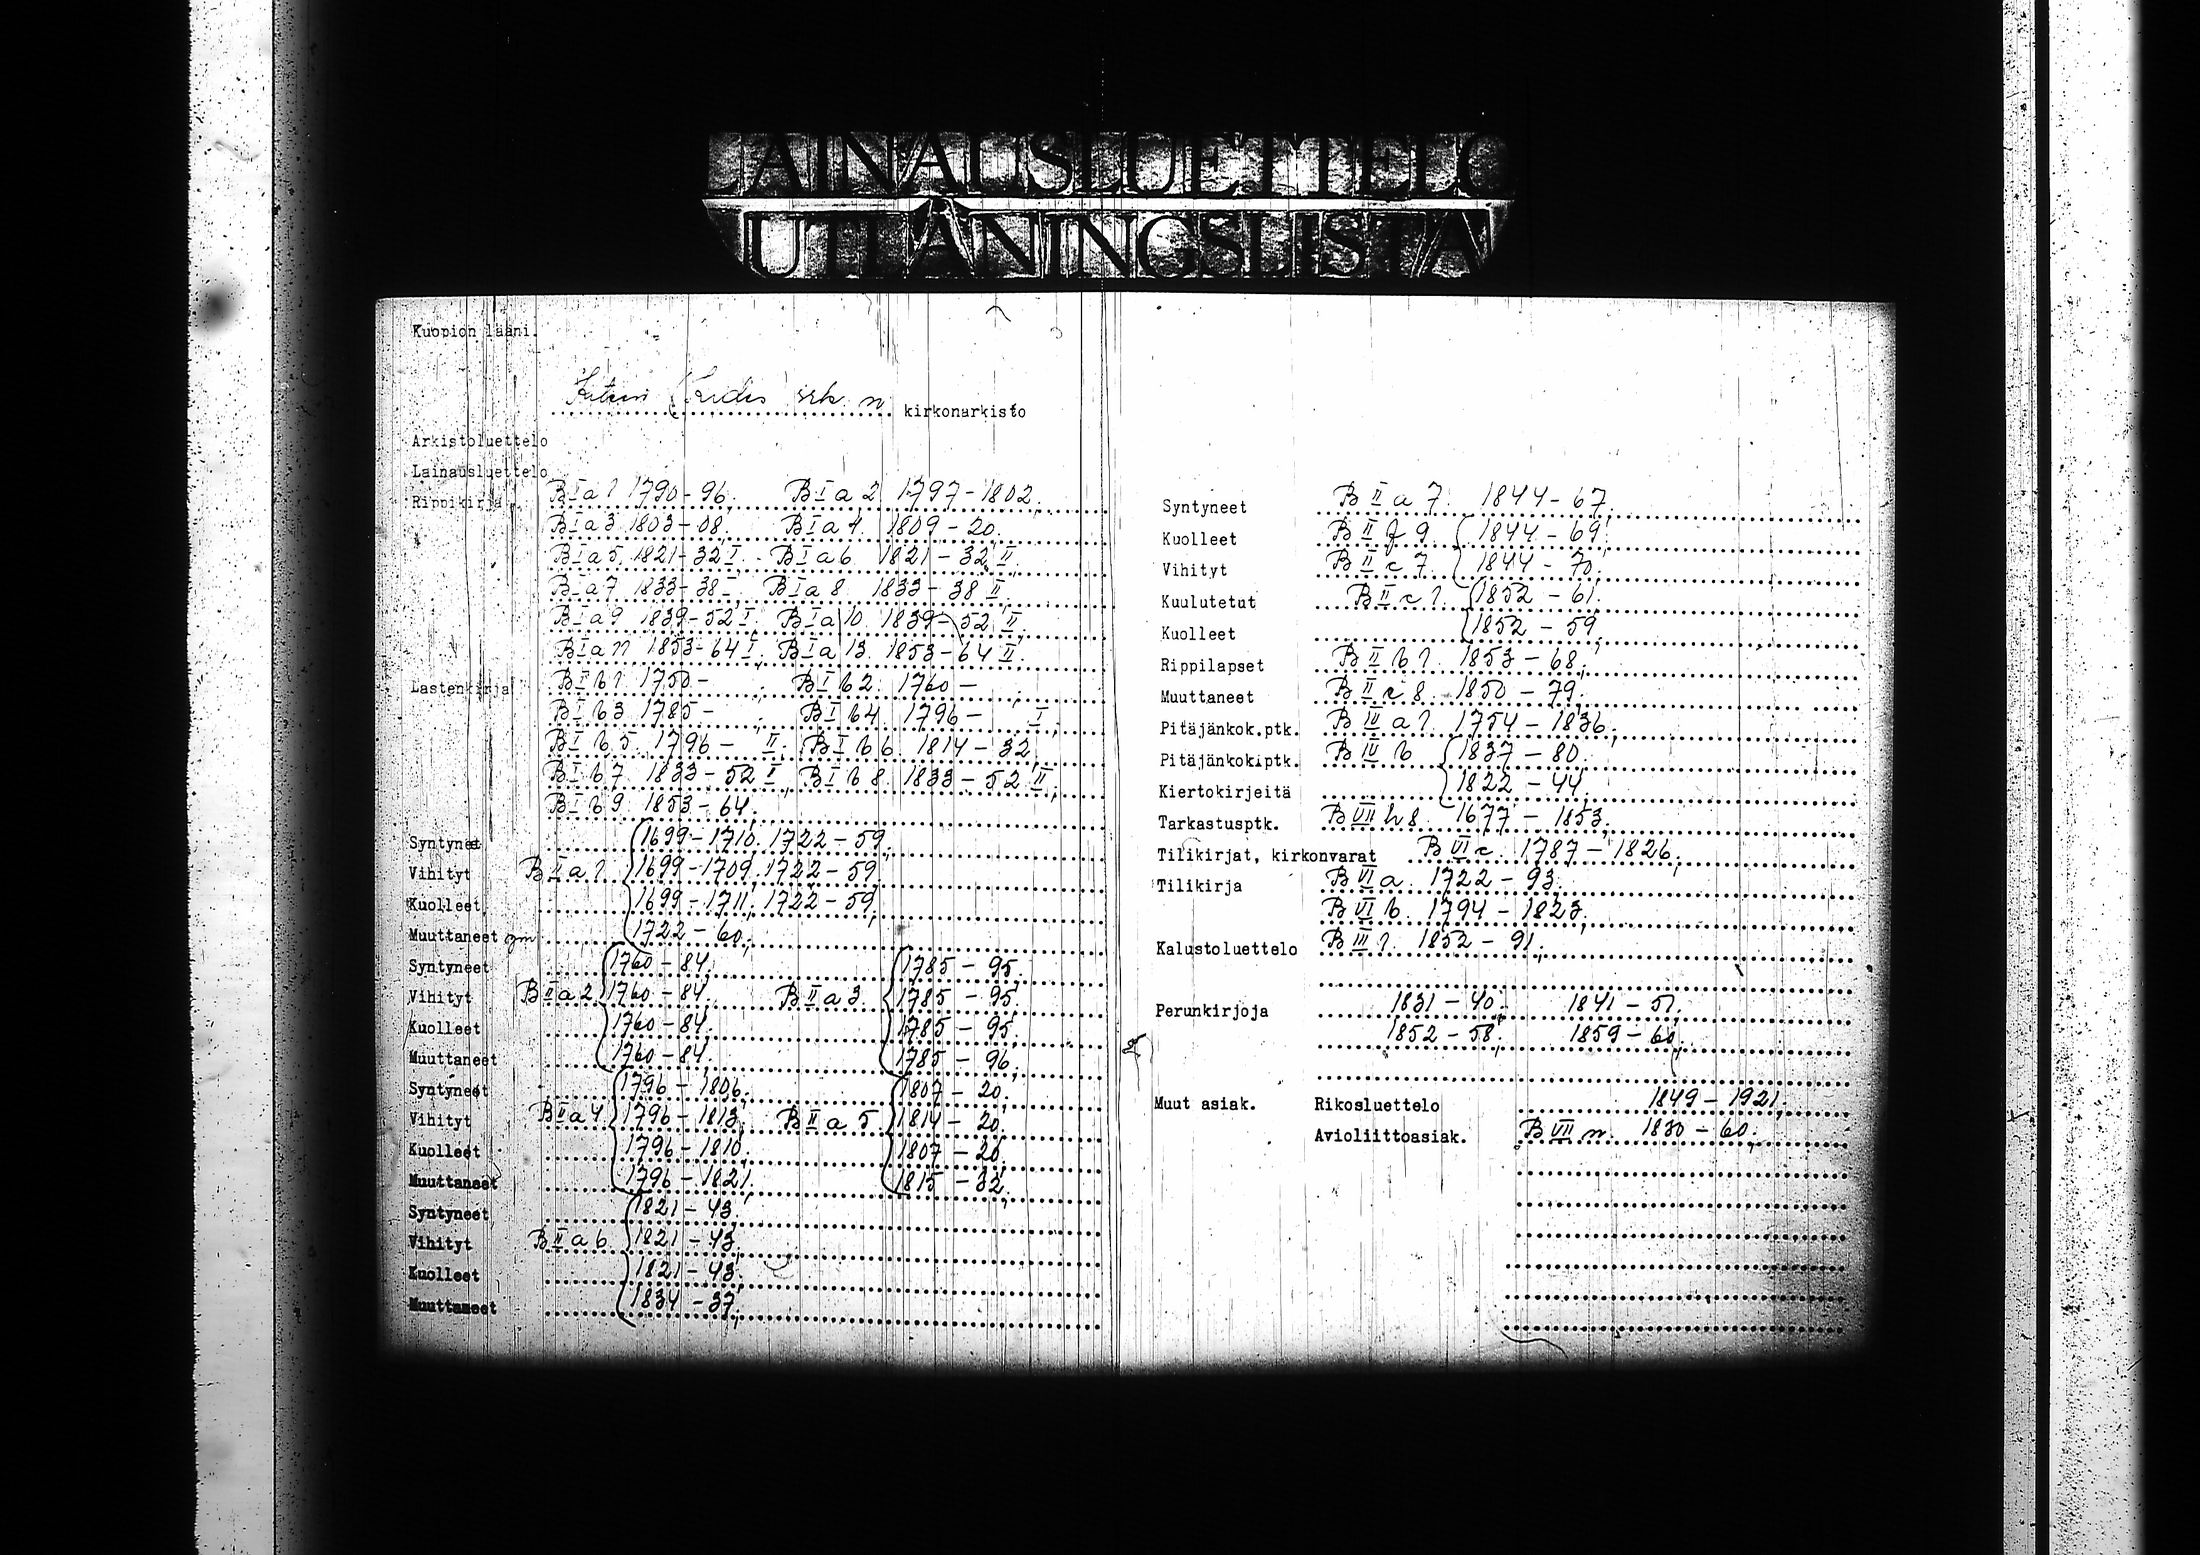 LAINAUSLUETTELO
UTLÅNINGSLISTA
Kuopion lääni.
Kiteen (Kides) srk. n kirkonarkisto
Arkistoluettelo
Lainausluettelo
Rippikirja B I a 1 1790-96, B I a 2 1797-1802,
B I a 3 1803-08, B I a 4. 1809-20.
B I a 5. 1821-32 I. B I a 6 1821-32 II,
B I a 7 1833-38 I, B I a 8 1833-38 II,
B I a 9 1839-52 I. B I a 10. 1839-52 II,
B I a 11 1853-64 I, B I a 13. 1853-64 II.
Lastenkirja B I b 1 1750- , B I b 2. 1760- ,
B I b 3 1785- , B I b 4. 1796- I,
B I b 5. 1796- II. B I b 6. 1814-32,
B I b 7 1833-52 I, B I b 8. 1833-52 II,
B I b 9 1853-64,
Syntyneet 1699-1710. 1722-59,
Vihityt B II a 1 1699-1709. 1722-59,
Kuolleet 1699-1711, 1722-59,
Muuttaneet ym 1722-60,
Syntyneet 1760-84, 1785-95,
Vihityt B II a 2 1760-84, B II a 3. 1785-95,
Kuolleet 1760-84, 1785-95,
Muuttaneet 1760-84. 1785-96,
Syntyneet 1796-1806, 1807-20,
Vihityt B II a 4 1796-1813, B II a 5. 1814-20,
Kuolleet 1796-1810, 1807-20,
Muuttaneet 1796-1821. 1815-32,
Syntyneet 1821-43,
Vihityt B II a 6. 1821-43,
Kuolleet 1821-43,
Muuttaneet 1834-37,
Syntyneet B II a 7. 1844-67,
Kuolleet B II f 9. 1844-69,
Vihityt B II c 7. 1844-70.
Kuulutetut B II c 1. 1852-61.
Kuolleet 1852-59,
Rippilapset B II b 1. 1853-68,
Muuttaneet B II e 8. 1850-79,
Pitäjänkok.ptk. B IV a 1. 1754-1836,
Pitäjänkok.ptk. B IV b 1837-80.
Kiertokirjeitä 1822-44.
Tarkastusptk. B VII h 8. 1677-1853,
Tilikirjat, kirkonvarat B VI c. 1787-1826,
Tilikirja B VI a. 1722-93.
B VI b. 1794-1823,
Kalustoluettelo B III 1. 1852-91,
Perunkirjoja 1831-40, 1841-51,
1852-58, 1859-60,
Muut asiak. Rikosluettelo 1849-1921,
Avioliittoasiak. B VII n. 1830-60,